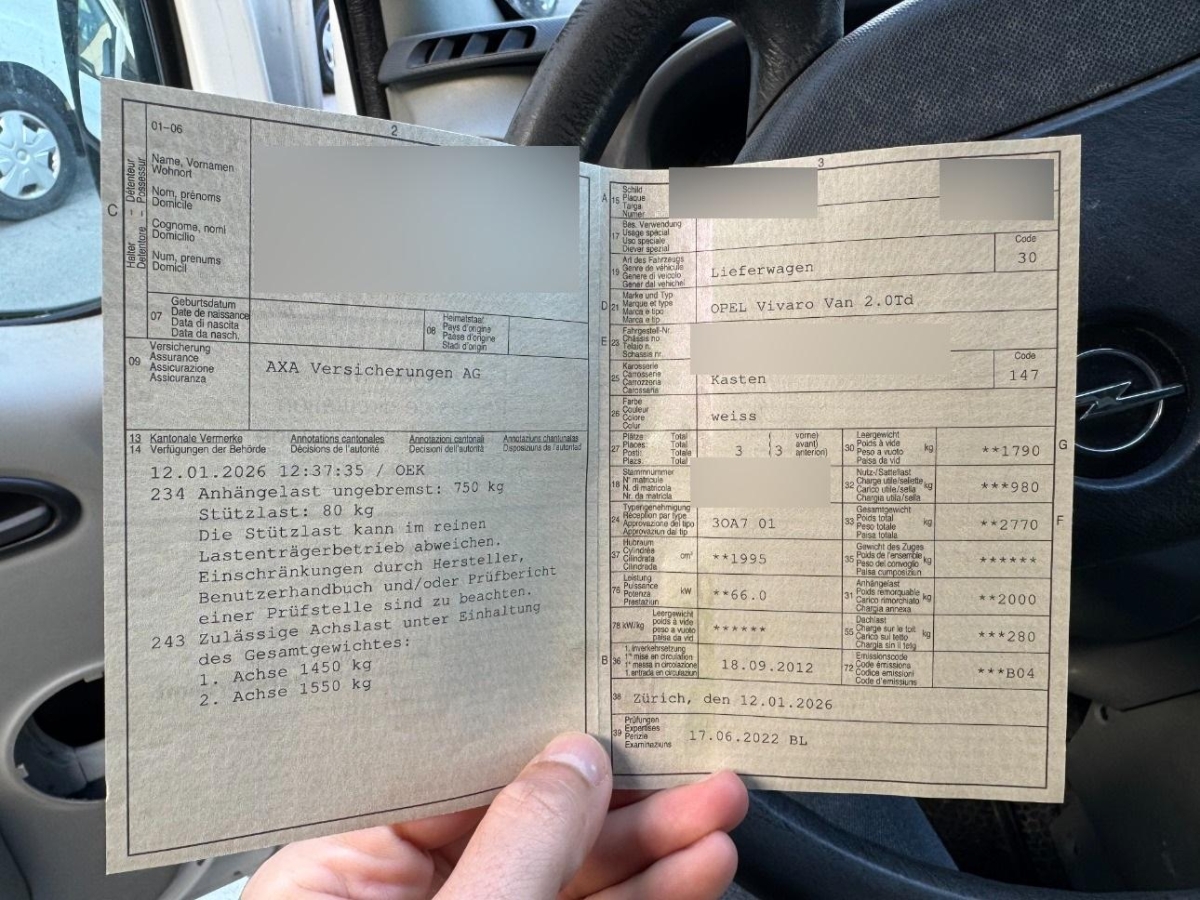 2
01-06
Name, Vornamen
Wohnort
Nom, prénoms
Domicile
Cognome, nomi
Domicilio
Num, prenums
Domicil
C
Halter – Détenteur
Detentore – Possessur
07
Geburtsdatum
Date de naissance
Data di nascita
Data da nasch.
08
Heimatstaat
Pays d'origine
Paese d'origine
Stadi d'origin
09
Versicherung
Assurance
Assicurazione
Assicuranza
AXA Versicherungen AG
13
14
Kantonale Vermerke
Verfügungen der Behörde
Annotations cantonales
Décisions de l'autorité
Annotazioni cantonali
Decisioni dell'autorità
Annotaziuns chantunalas
Disposiziuns da l'autoritad
12.01.2026 12:37:35 / OEK
234 Anhängelast ungebremst: 750 kg
Stützlast: 80 kg
Die Stützlast kann im reinen
Lastenträgerbetrieb abweichen.
Einschränkungen durch Hersteller,
Benutzerhandbuch und/oder Prüfbericht
einer Prüfstelle sind zu beachten.
243 Zulässige Achslast unter Einhaltung
des Gesamtgewichtes:
1. Achse 1450 kg
2. Achse 1550 kg
3
A
15
Schild
Plaque
Targa
Numer
17
Bes. Verwendung
Usage spécial
Uso speciale
Diever spezial
19
Art des Fahrzeugs
Genre de véhicule
Genere di veicolo
Gener dal vehichel
Lieferwagen
Code
30
D
21
Marke und Typ
Marque et type
Marca e tipo
Marca e tip
OPEL Vivaro Van 2.0Td
E
23
Fahrgestell-Nr.
Châssis no
Telaio n.
Schassis nr.
25
Karosserie
Carrosserie
Carrozzeria
Carossaria
Kasten
Code
147
26
Farbe
Couleur
Colore
Color
weiss
27
Plätze Total
Places: Total
Posti: Totale
Plazs. Total
3
(3
vorne)
avant)
anteriori)
30
Leergewicht
Poids à vide
Peso a vuoto
Paisa da vid
kg
**1790
G
18
Stammnummer
N° matricule
N. di matricola
Nr. da matricla
32
Nutz-/Sattellast
Charge utile/sellette
Carico utile/sella
Chargia utila/sella
kg
***980
24
Typengenehmigung
Réception par type
Approvazione del tipo
Approvaziun dal tip
3OA7 01
33
Gesamtgewicht
Poids total
Peso totale
Paisa totala
kg
**2770
F
37
Hubraum
Cylindrée
Cilindrata
Cilindrada
cm³
**1995
35
Gewicht des Zuges
Poids de l'ensemble
Peso del convoglio
Paisa cumposiziun
kg
******
76
Leistung
Puissance
Potenza
Prestaziun
kW
**66.0
31
Anhängelast
Poids remorquable
Carico rimorchiato
Chargia annexa
kg
**2000
78 kW/kg
Leergewicht
poids à vide
peso a vuoto
paisa da vid
******
55
Dachlast
Charge sur le toit
Carico sul tetto
Chargia sin il tetg
kg
***280
B
36
1. Inverkehrsetzung
1re mise en circulation
1a messa in circolazione
1. entrada en circulaziun
18.09.2012
72
Emissionscode
Code émissions
Codice emissioni
Code d'emissiuns
***B04
38
Zürich, den 12.01.2026
39
Prüfungen
Expertises
Perizie
Examinaziuns
17.06.2022 BL